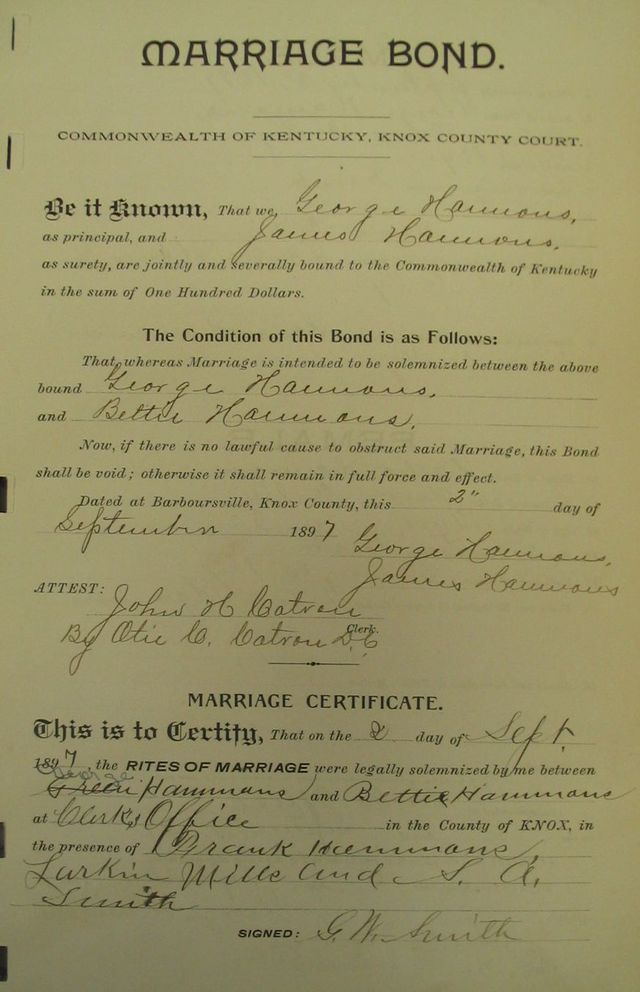 MARRIAGE BOND.
COMMONWEALTH OF KENTUCKY, KNOX COUNTY COURT.
Be it Known, That we, George Hammons,
as principal, and James Hammons,
as surety, are jointly and severally bound to the Commonwealth of Kentucky
in the sum of One Hundred Dollars.
The Condition of this Bond is as Follows:
That whereas Marriage is intended to be solemnized between the above
bound George Hammons,
and Bettie Hammons,
Now, if there is no lawful cause to obstruct said Marriage, this Bond
shall be void; otherwise it shall remain in full force and effect.
Dated at Barboursville, Knox County, this 2" day of
September 1897
George Hammons,
James Hammons
ATTEST:
John H Catron
Clerk.
By Otie C. Catron D.C
MARRIAGE CERTIFICATE.
This is to Certify, That on the 2 day of Sept.
1897, the RITES OF MARRIAGE were legally solemnized by me between
George
Green Hammons and Bettie Hammons
at Clerks Office in the County of KNOX, in
the presence of Frank Hammons,
Larkin Mills and S. A.
Smith
SIGNED: G. W. Smith